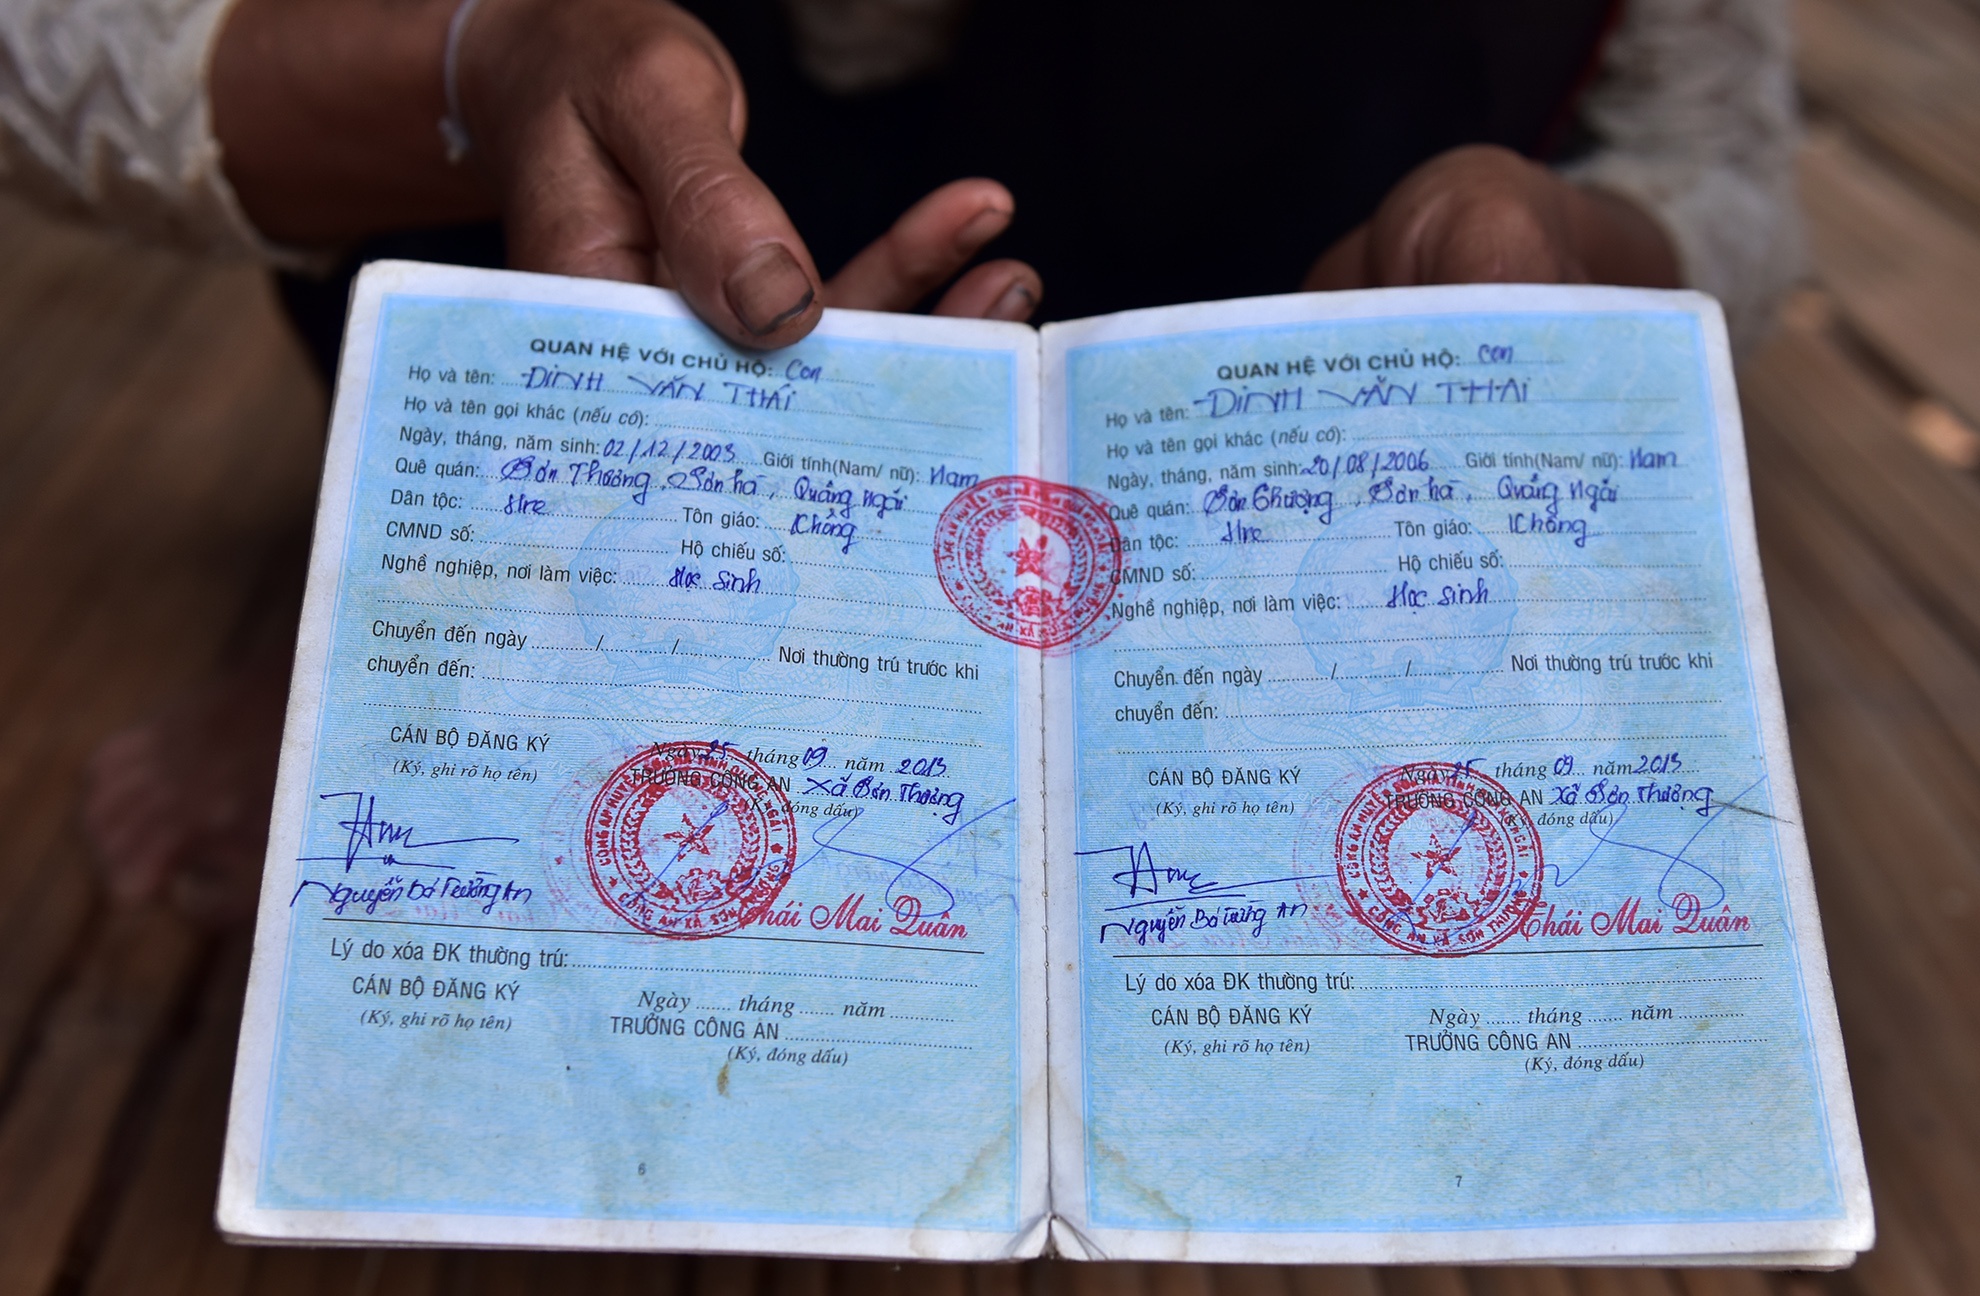 QUAN HỆ VỚI CHỦ HỘ: Con
Họ và tên: ĐINH VĂN THÁI
Họ và tên gọi khác (nếu có):
Ngày, tháng, năm sinh: 02/12/2003 Giới tính(Nam/ nữ): Nam
Quê quán: Sơn Thượng, Sơn hà, Quảng Ngãi
Dân tộc: Hre Tôn giáo: Không
CMND số: Hộ chiếu số:
Nghề nghiệp, nơi làm việc: Học sinh
Chuyển đến ngày / / Nơi thường trú trước khi
chuyển đến:
CÁN BỘ ĐĂNG KÝ Ngày 25 tháng 09 năm 2013
(Ký, ghi rõ họ tên) TRƯỞNG CÔNG AN Xã Sơn Thượng
(Ký, đóng dấu)
Nguyễn Bá Trường An
CÔNG AN XÃ SƠN
Thái Mai Quân
Lý do xóa ĐK thường trú:
CÁN BỘ ĐĂNG KÝ Ngày tháng năm
(Ký, ghi rõ họ tên) TRƯỞNG CÔNG AN
(Ký, đóng dấu)
6
QUAN HỆ VỚI CHỦ HỘ: Con
Họ và tên: ĐINH VĂN THAI
Họ và tên gọi khác (nếu có):
Ngày, tháng, năm sinh: 20/08/2006 Giới tính(Nam/ nữ): Nam
Quê quán: Sơn Thượng, Sơn hà, Quảng Ngãi
Dân tộc: Hre Tôn giáo: Không
CMND số: Hộ chiếu số:
Nghề nghiệp, nơi làm việc: Học sinh
Chuyển đến ngày / / Nơi thường trú trước khi
chuyển đến:
CÁN BỘ ĐĂNG KÝ Ngày 25 tháng 09 năm 2013
(Ký, ghi rõ họ tên) TRƯỞNG CÔNG AN Xã Sơn Thượng
(Ký, đóng dấu)
Nguyễn Bá Trường An
CÔNG AN XÃ SƠN THƯỢNG
Thái Mai Quân
Lý do xóa ĐK thường trú:
CÁN BỘ ĐĂNG KÝ Ngày tháng năm
(Ký, ghi rõ họ tên) TRƯỞNG CÔNG AN
(Ký, đóng dấu)
7